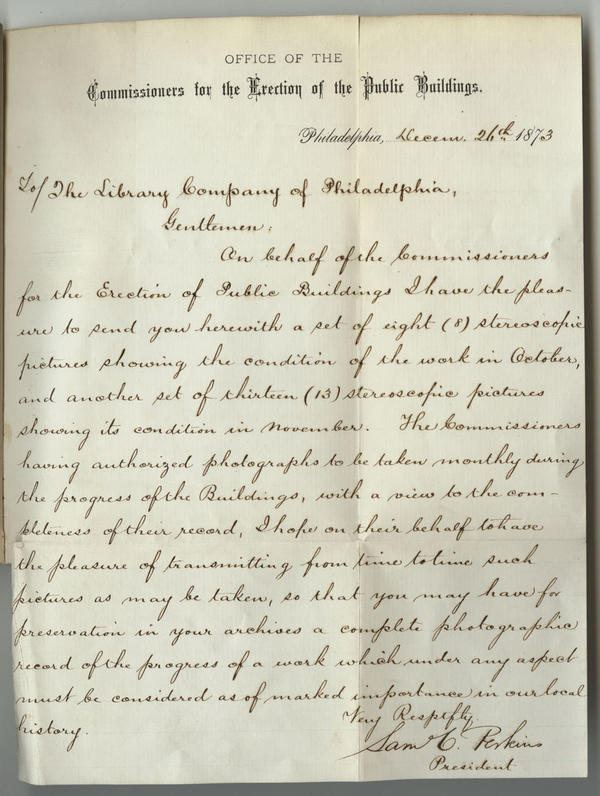 OFFICE OF THE
Commissioners for the Erection of the Public Buildings.
Philadelphia, Decem. 26th 1873
To/ The Library Company of Philadelphia,
Gentlemen:
On behalf of the Commissioners
for the Erection of Public Buildings I have the pleas-
ure to send you herewith a set of eight (8) stereoscopic
pictures showing the condition of the work in October,
and another set of thirteen (13) stereoscopic pictures
showing its condition in November. The Commissioners
having authorized photographs to be taken monthly during
the progress of the Buildings, with a view to the com-
pleteness of their record, I hope on their behalf to have
the pleasure of transmitting from time to time such
pictures as may be taken, so that you may have for
preservation in your archives a complete photographic
record of the progress of a work which under any aspect
must be considered as of marked importance in our local
history.
Very Respffly.
Saml C. Perkins
President